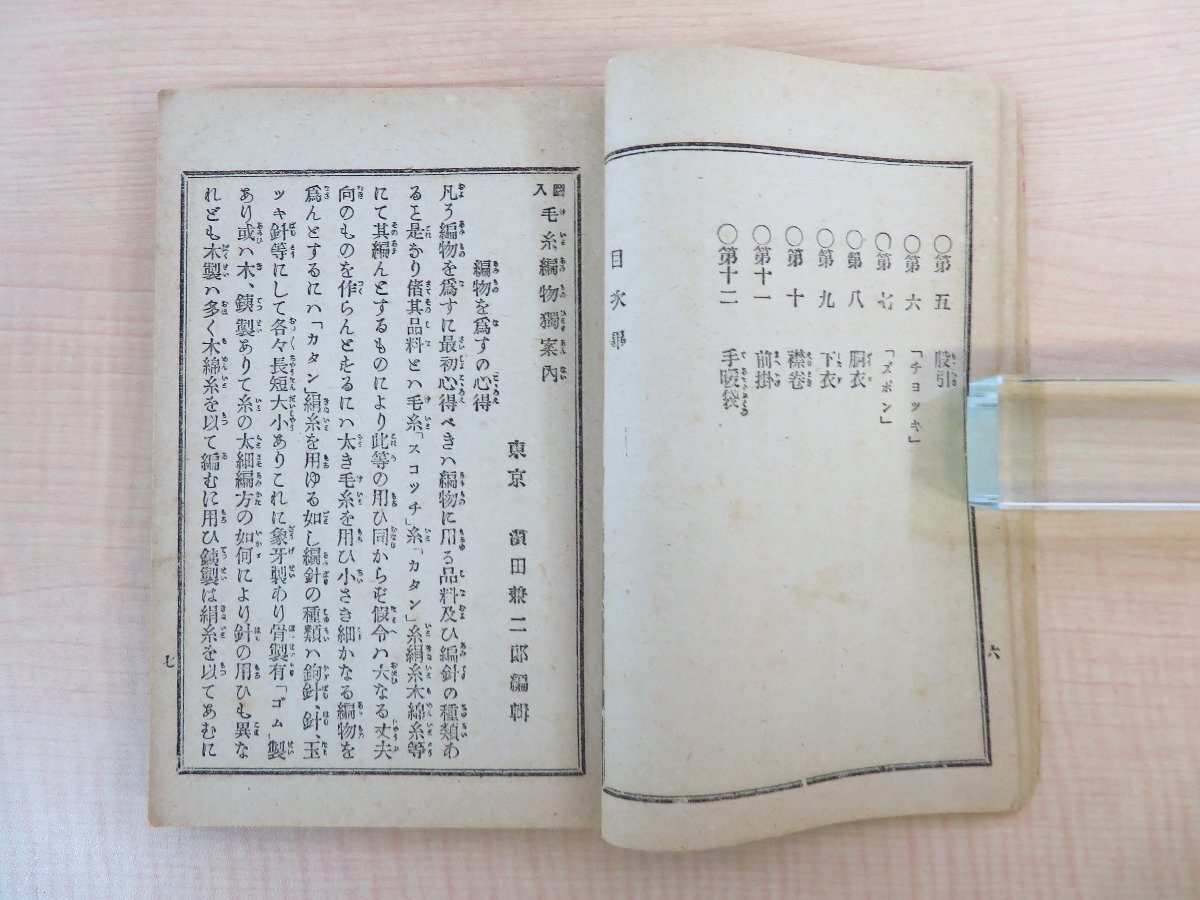 〇第五 股引
〇第六 「チヨツキ」
〇第七 「ズボン」
〇第八 胴衣
〇第九 下衣
〇第十 襟卷
〇第十一 前掛
〇第十二 手暖袋
目次畢
六
圖入 毛糸編物獨案內
東京 濱田兼二郎編輯
編物を爲すの心得
凡う編物を爲すに最初心得べきハ編物に用る品料及ひ編針の種類あ
ると是なり偖其品料とハ毛糸「スコツチ」糸「カタン」糸絹糸木綿糸等
にて其編んとするものにより此等の用ひ同からぞ假令ハ大なる丈夫
向のものを作らんとするにハ太き毛糸を用ひ小さき細かなる編物を
爲んとするにハ「カタン」絹糸を用ゆる如し編針の種類ハ鉤針、針、玉
ツキ針等にして各々長短大小ありこれに象牙製あり骨製有「ゴム」製
あり或ハ木、銕製ありて糸の太細編方の如何により針の用ひも異な
れども木製ハ多く木綿糸を以て編むに用ひ銕製は絹糸を以てあむに
七